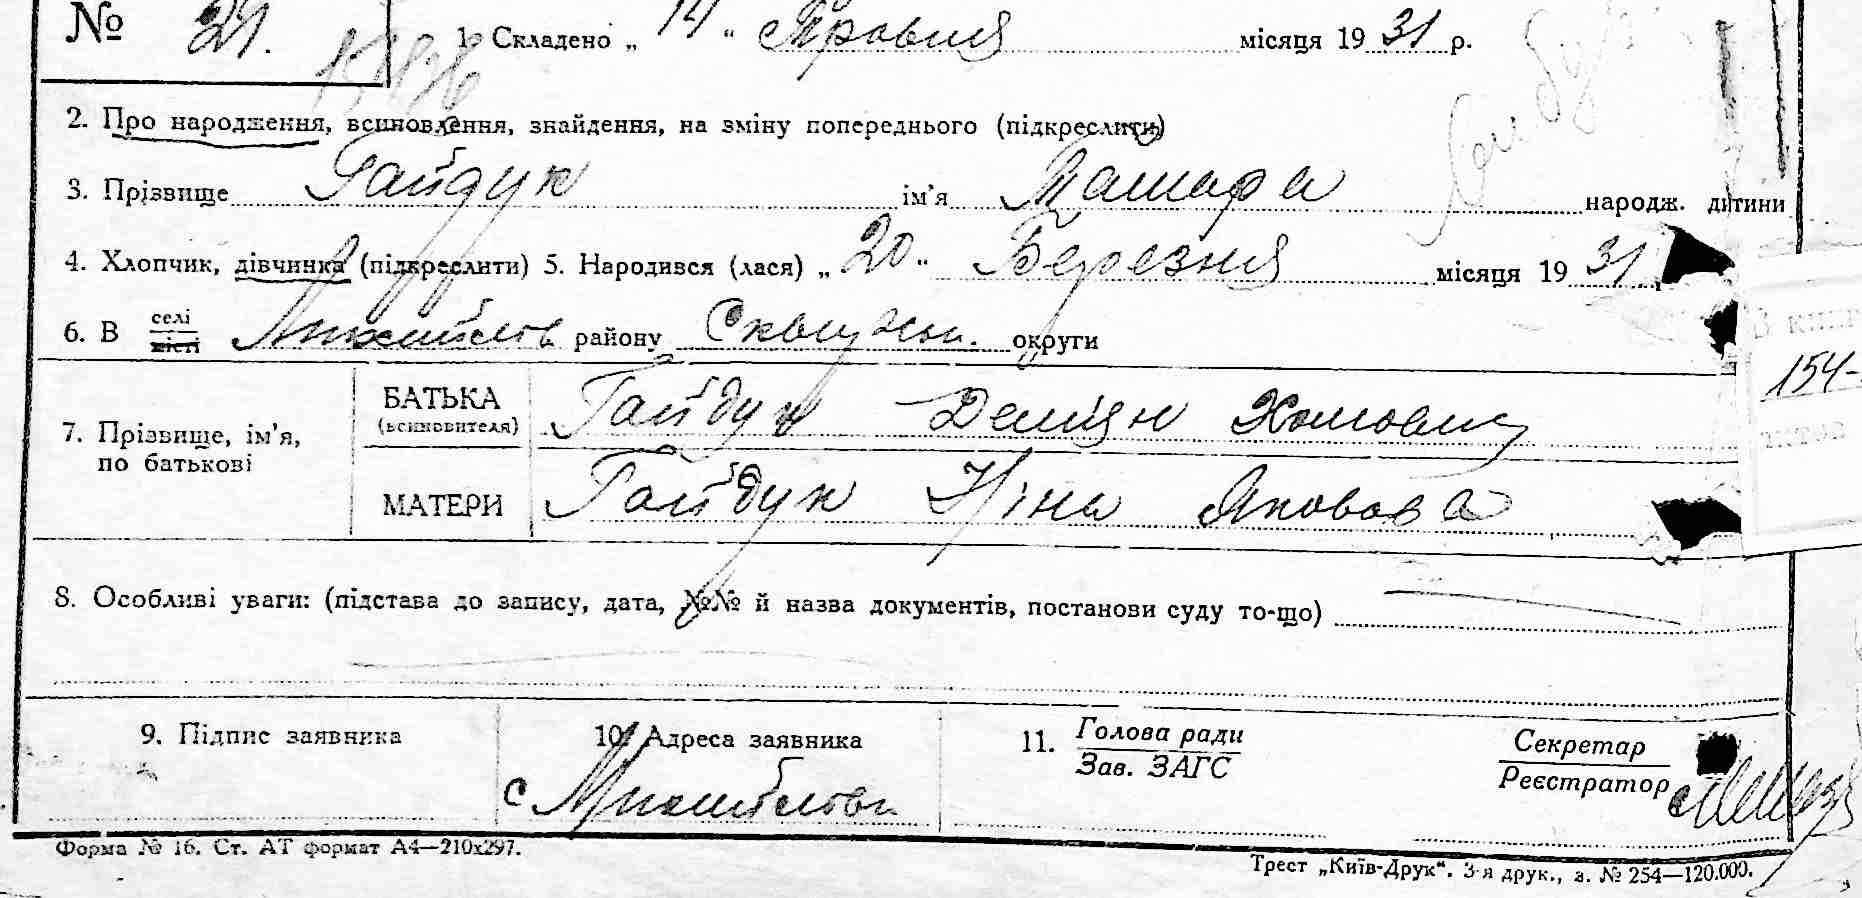 № 21. 1. Складено „ 14 " Травня місяця 19 31 р.
2. Про народження, всиновлення, знайдення, на зміну попереднього (підкреслити)
3. Прізвище Гайдук ім’я Тамара народж. дитини
4. Хлопчик, дівчинка (підкреслити) 5. Народився (лася) „ 20 " Березня місяця 19 31
6. В селі місті Михайлівка району Сквирськ. округи
7. Прізвище, ім’я, по батькові
БАТЬКА (всиновителя) Гайдук Демян Хомович
МАТЕРИ Гайдук Ніна Яковова
154-
8. Особливі уваги: (підстава до запису, дата, №№ й назва документів, постанови суду то-що)
9. Підпис заявника 10. Адреса заявника 11. Голова ради Секретар
Зав. ЗАГС Реєстратор
с Михайлівка
Форма № 16. Ст. АТ формат А4—210х297.
Трест „Київ-Друк“. 3-я друк., з. № 254—120.000.